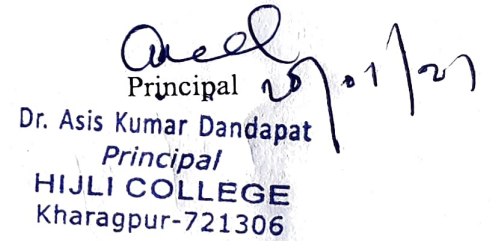 Principal
Dr. Asis Kumar Dandapat
Principal
HIJLI COLLEGE
Kharagpur-721306